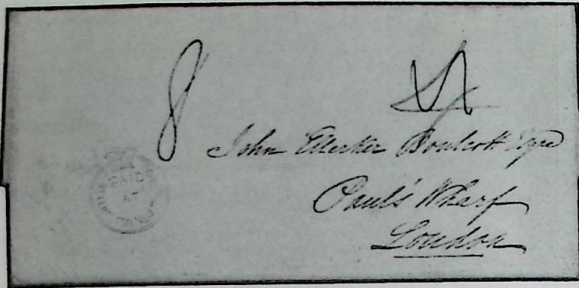 8 4
John Ellerker Boulcott Esqre
Paul's Wharf
London